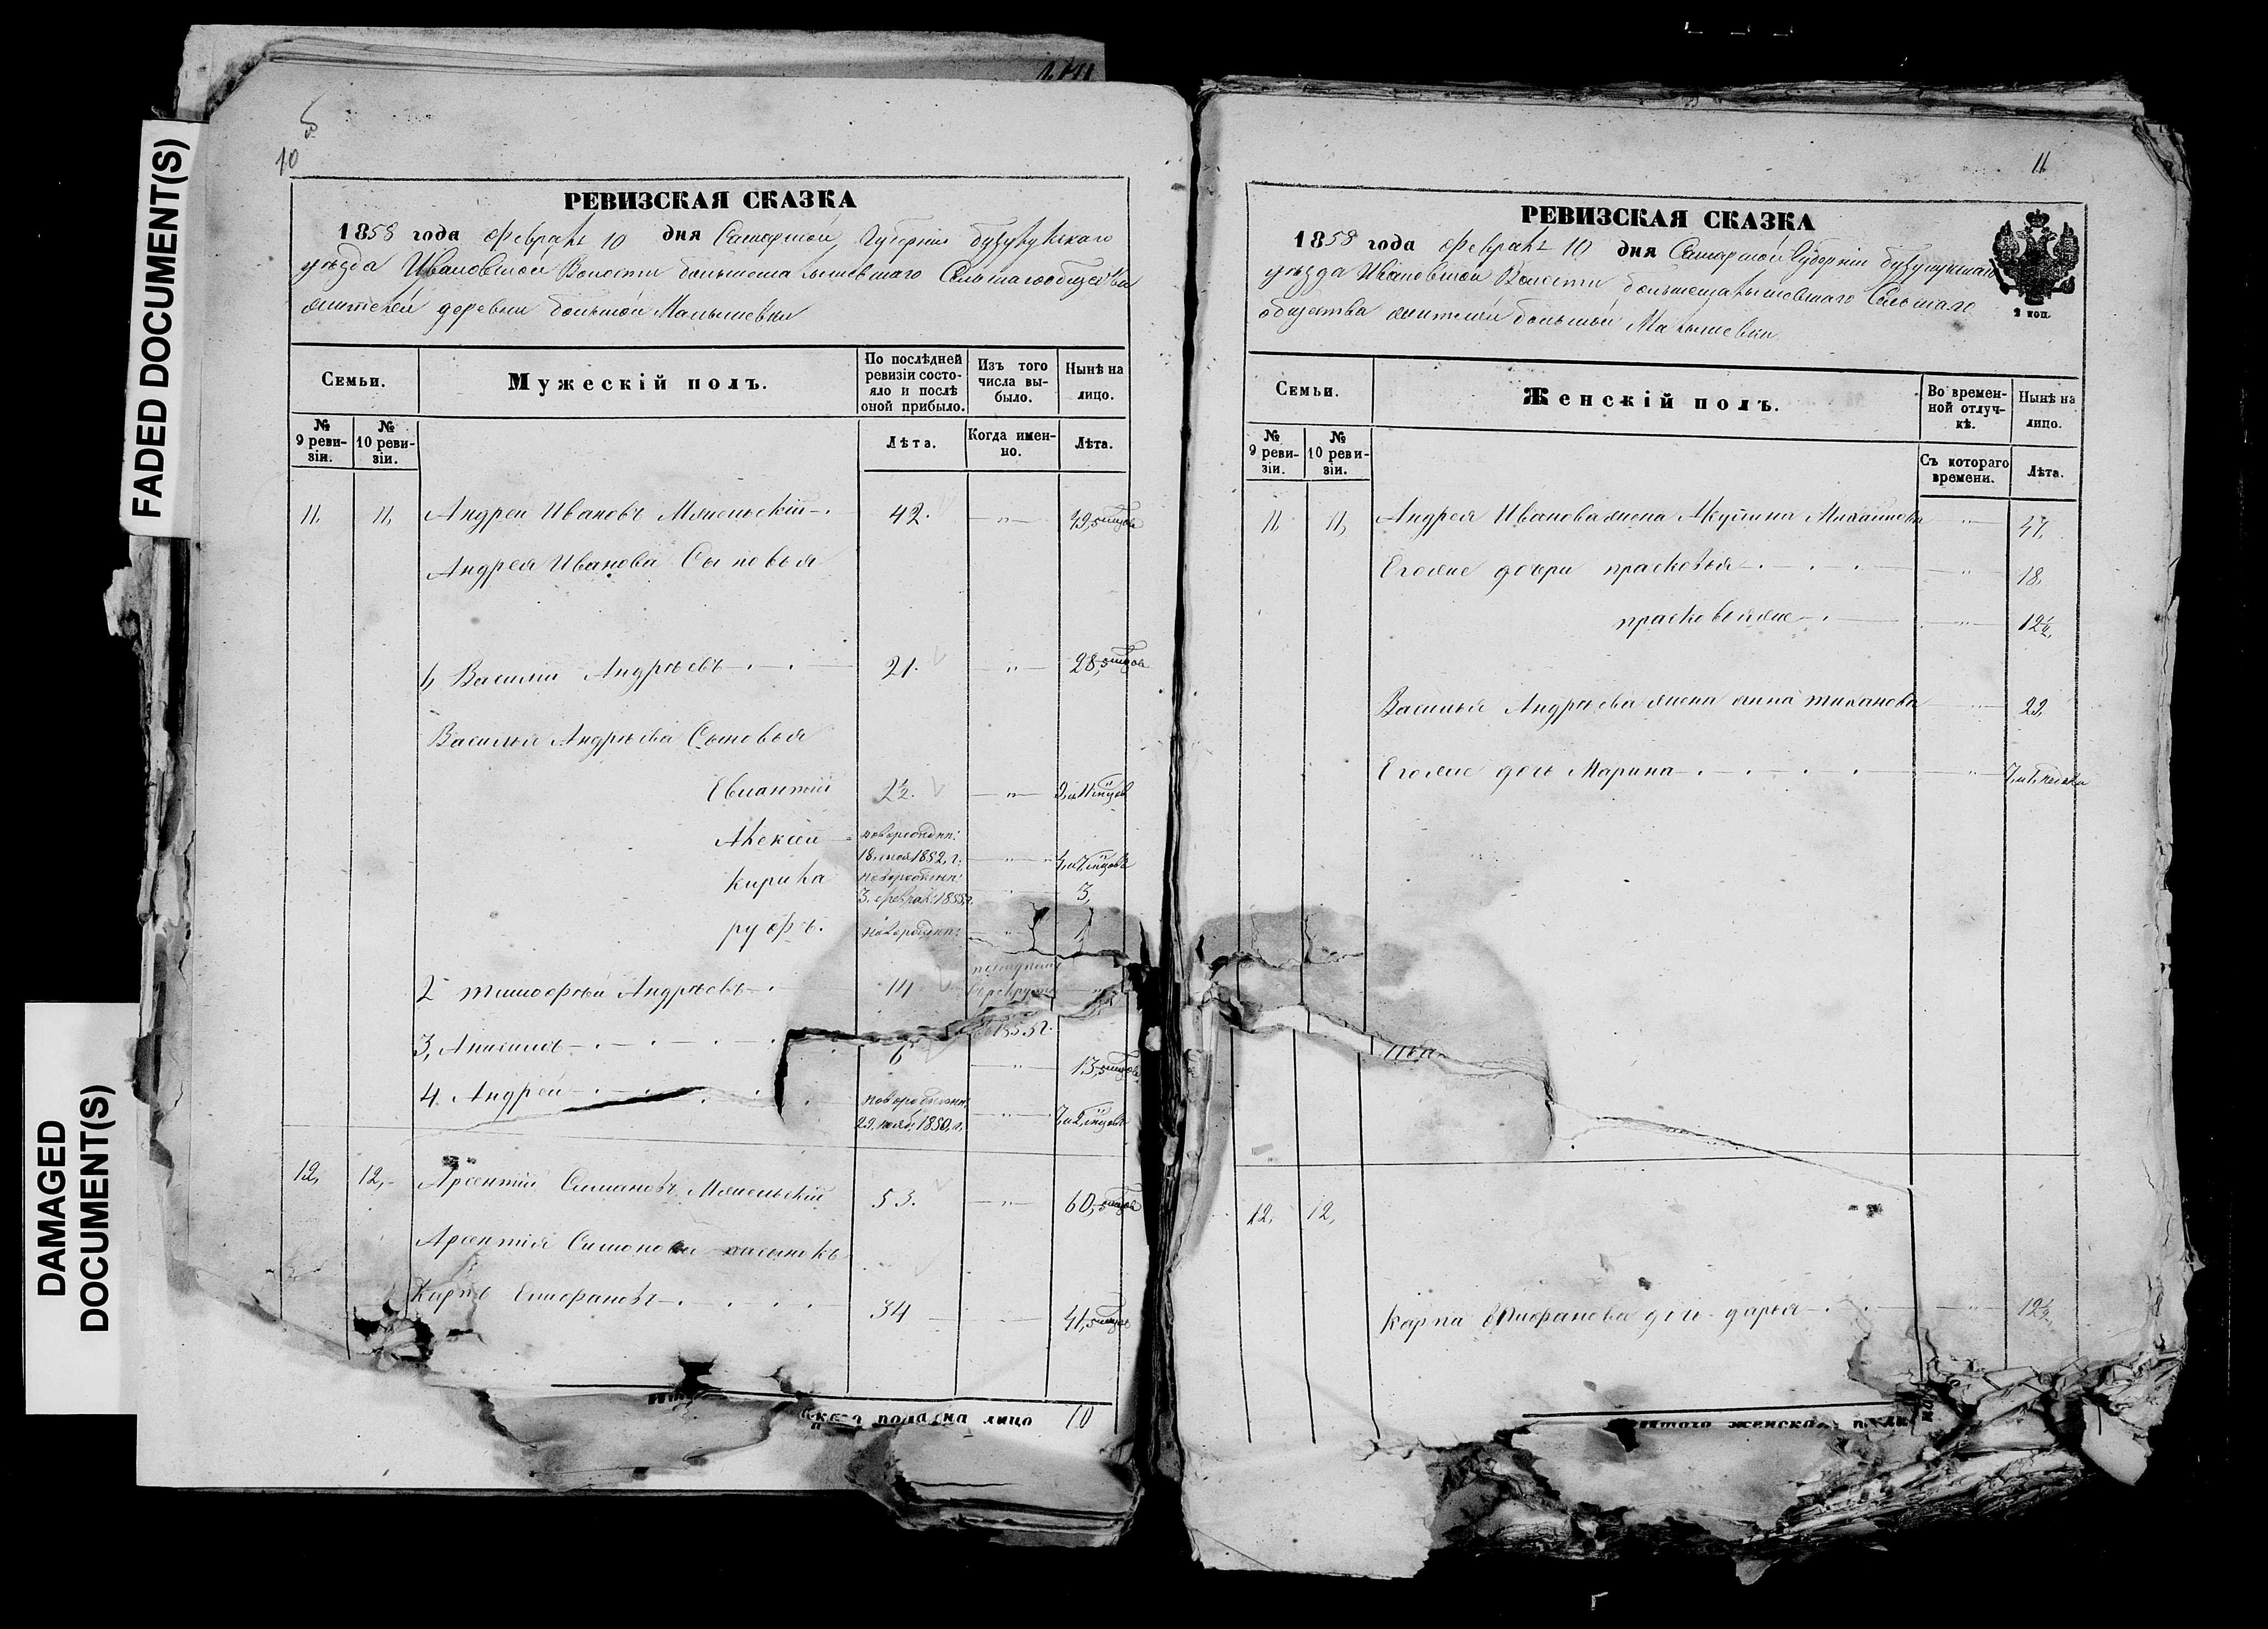 FADED DOCUMENT(S)
DAMAGED
DOCUMENT(S)
10
РЕВИЗСКАЯ СКАЗКА
1858 года Февраля 10 дня Самарской Губернии Бузулукскаго
уѣзда Ивановской Волости Большемалышевскаго Сельскагообщества
жителей деревни большой Малышевки
Семьи.
Мужескій полъ.
По послѣдней ревизіи состояло и послѣ оной прибыло.
Изъ того числа выбыло.
Нынѣ на лицо.
№ 9 ревизіи.
№ 10 ревизіи.
Лѣта.
Когда именно.
Лѣта.
11, 11, Андрей Ивановъ 42. 49,
Андрея Иванова Сыновья
1, Василий Андрѣевъ 21. 28,
Василья Андрѣева Сыновья
2½.
Алексей новорожден:
18. мая 1852, г.
Кирила
3. феврал: 1855, г. 3,
руфъ. новорожден: 1,
2 тимофѣй Андрѣевъ 14 поступилъ
в рекруты
1855 г.
3, 6 13,
4 Андрей новорожденн:
29. нояб: 1850, г.
12, 12, Арсентий Симановъ 53. 60,
Арсентия Симонова пасынокъ
Карпъ Епифановъ 34 41,
пола на лицо 10
11
РЕВИЗСКАЯ СКАЗКА
1858 года Февраля 10 дня Самарской Губернии Бузулукскаго
уѣзда Ивановской Волости Большемалышевскаго Сельскаго
общества жителей большой Малышевки
2 коп.
Семьи.
Женскій полъ.
Во временной отлучкѣ.
Нынѣ на лицо.
№ 9 ревизіи.
№ 10 ревизіи.
Съ котораго времени.
Лѣта.
11, 11, Андрея Иванова жена Акулина Михайлова 47,
Егоже дочри прасковья 18,
12½,
Василья Андрѣева жена анна тиханова 29,
Егоже дочь Марина
12, 12,
Карпа Епифанова дочь дарья 12½
итого женска